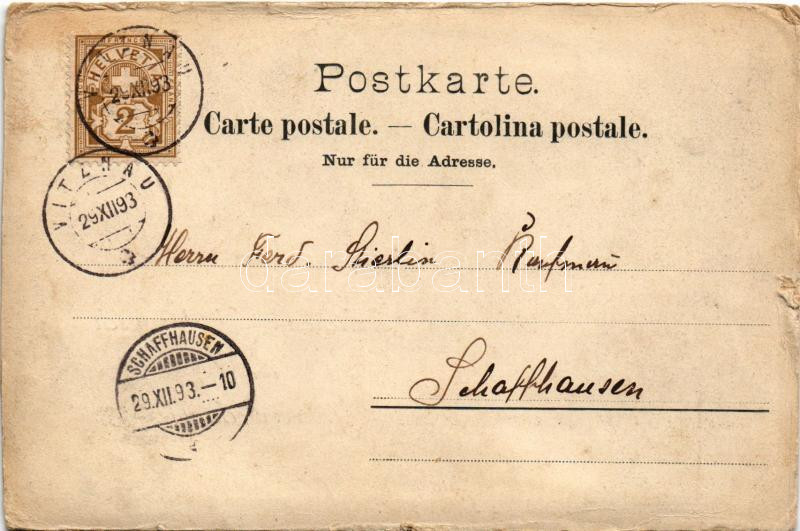 FRANCO
HELVETIA
2
VITZNAU
29.XII.93
Postkarte.
Carte postale. — Cartolina postale.
Nur für die Adresse.
VITZNAU
29XII93
Herrn Ferd. Stierlin Kaufmann
darabanth
SCHAFFHAUSEN
29.XII.93.–10
Schaffhausen